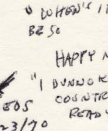 " WHEN'S I
BE SO
HAPPY N
"I DUNNO K
COUNTR
READ
EOS
23/70